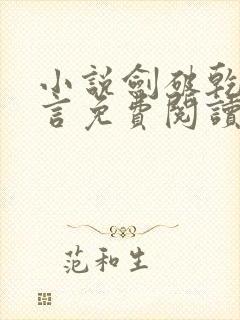 小説劍破乾
言免費閱讀
范和生